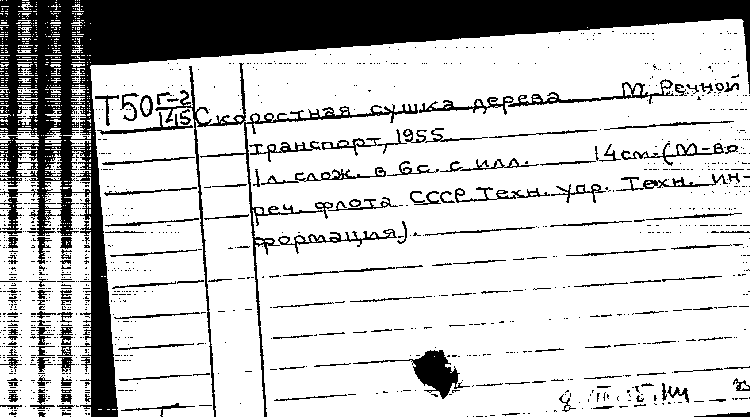 Т50 Г-2/145 Скоростная сушка дерева М, Речной
транспорт, 1955
1 л. слож. в 6с. с илл. 14см. (М-во
реч. флота СССР. Техн. упр. Техн. ин-
формация).